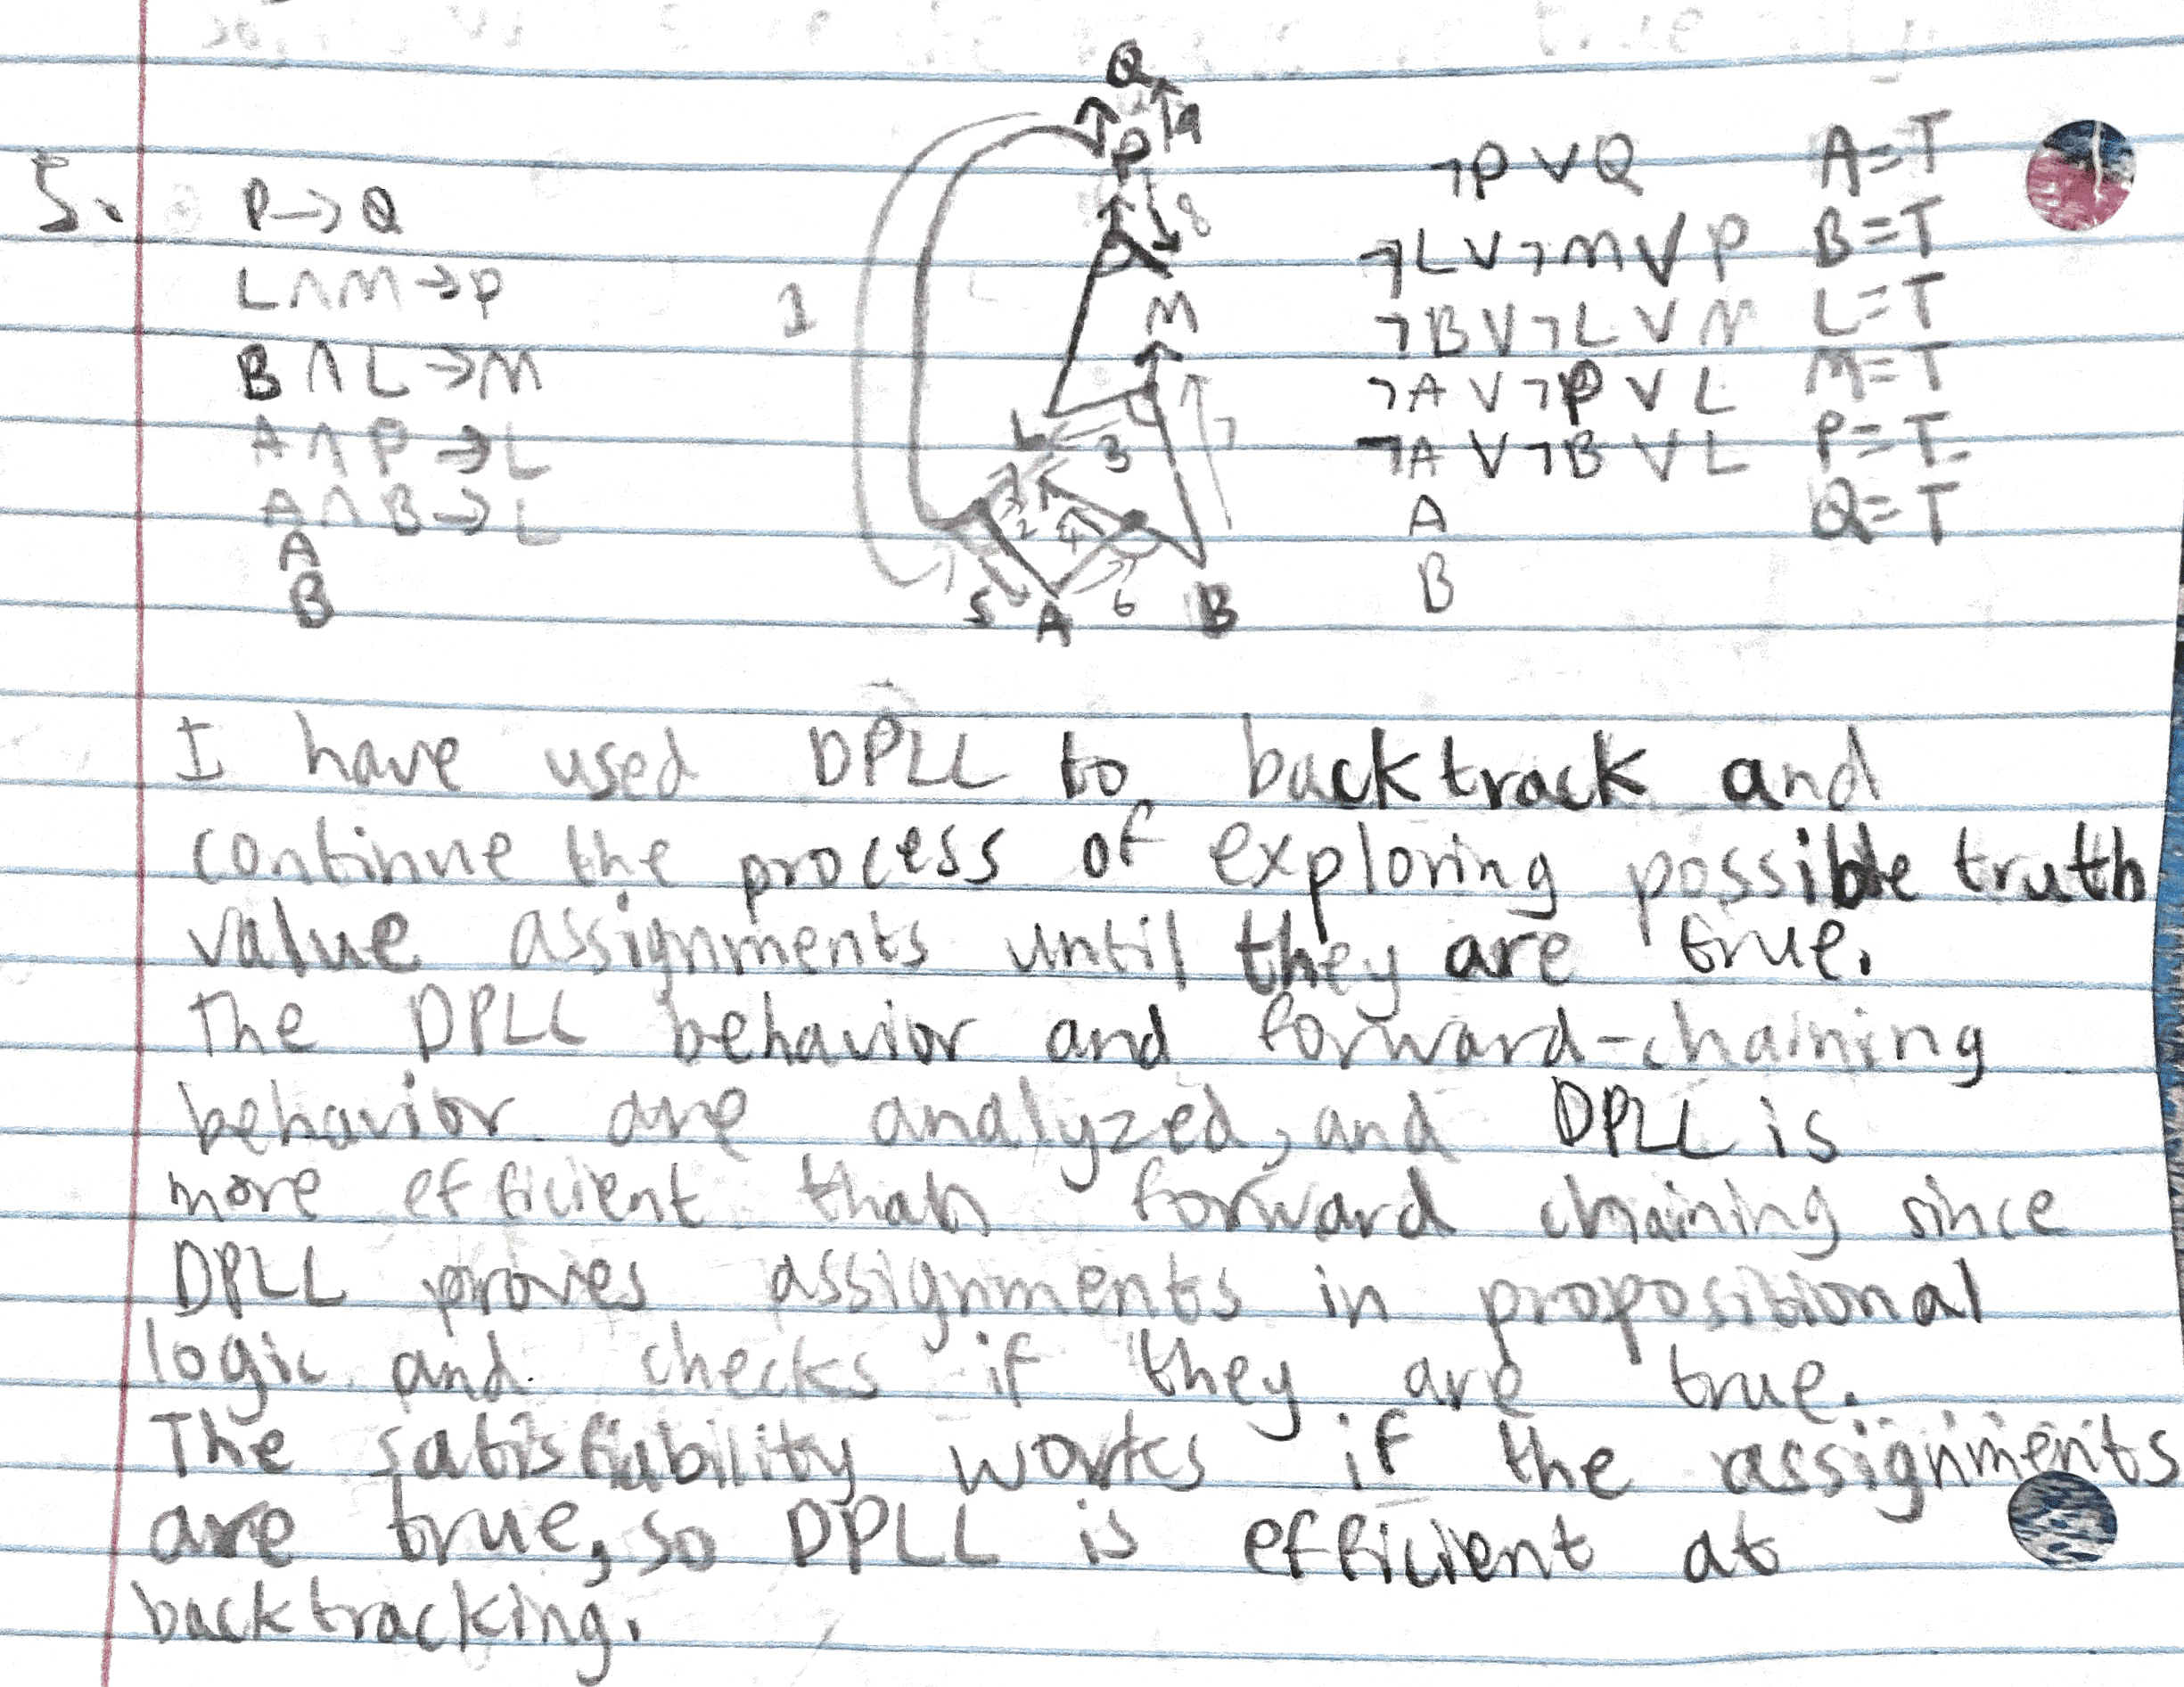 5.
P→Q
L∧M→P
B∧L→M
A∧P→L
A∧B→L
A
B
Q
9
P
8
1
M
L
3
7
2
4
5
A
6
B
¬P∨Q
¬L∨¬M∨P
¬B∨¬L∨M
¬A∨¬P∨L
¬A∨¬B∨L
A
B
A=T
B=T
L=T
M=T
P=T
Q=T
I have used DPLL to backtrack and
continue the process of exploring possible truth
value assignments until they are true.
The DPLL behavior and forward-chaining
behavior are analyzed, and DPLL is
more efficient than forward chaining since
DPLL proves assignments in propositional
logic and checks if they are true.
The satisfiability works if the assignments
are true, so DPLL is efficient at
backtracking.